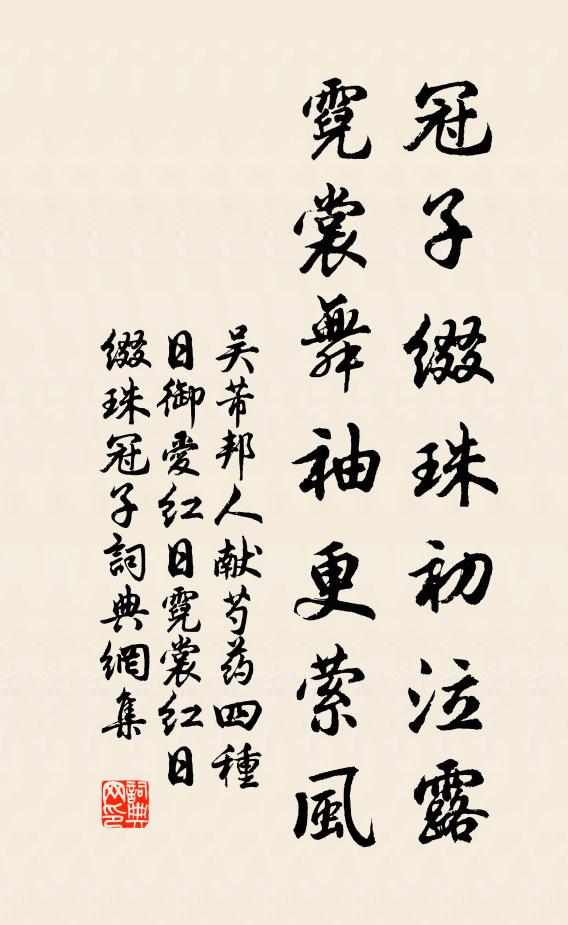 冠子缀珠初泣露
霓裳舞袖更萦風
吴芾邦人献芍药四種
日御愛红日霓裳红日
缀珠冠子詞典網集
詞典网印